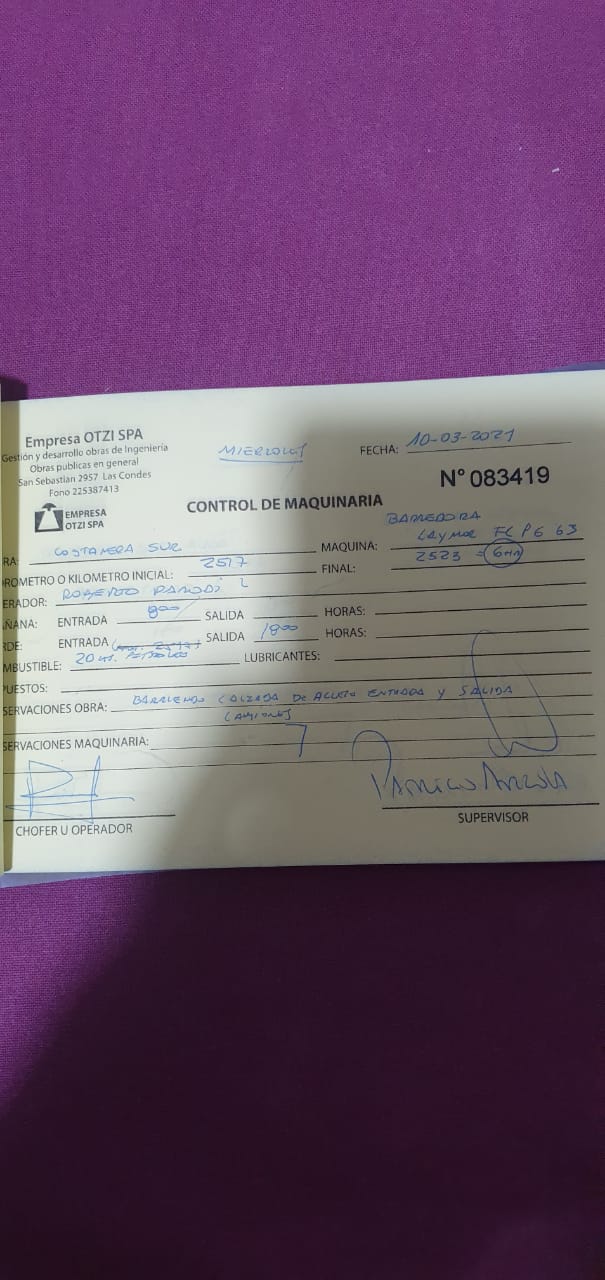 Empresa OTZI SPA
Gestión y desarrollo obras de Ingenieria
Obras publicas en general
San Sebastian 2957 Las Condes
Fono 225387413
EMPRESA
OTZI SPA
MIERCOLES
FECHA: 10-03-2021
N° 083419
CONTROL DE MAQUINARIA
BARREDORA
RA: COSTANERA SUR MAQUINA: LAYMOR FCPG 63
OROMETRO O KILOMETRO INICIAL: 2517 FINAL: 2523 = 6Hrs
ERADOR: ROBERTO
AÑANA: ENTRADA 800 SALIDA HORAS:
RDE: ENTRADA SALIDA 1800 HORAS:
MBUSTIBLE: 20 LUBRICANTES:
PUESTOS:
SERVACIONES OBRA: BARRIENDO CALZADA DE ACCESO ENTRADA Y SALIDA
CAMIONES
SERVACIONES MAQUINARIA:
CHOFER U OPERADOR
SUPERVISOR